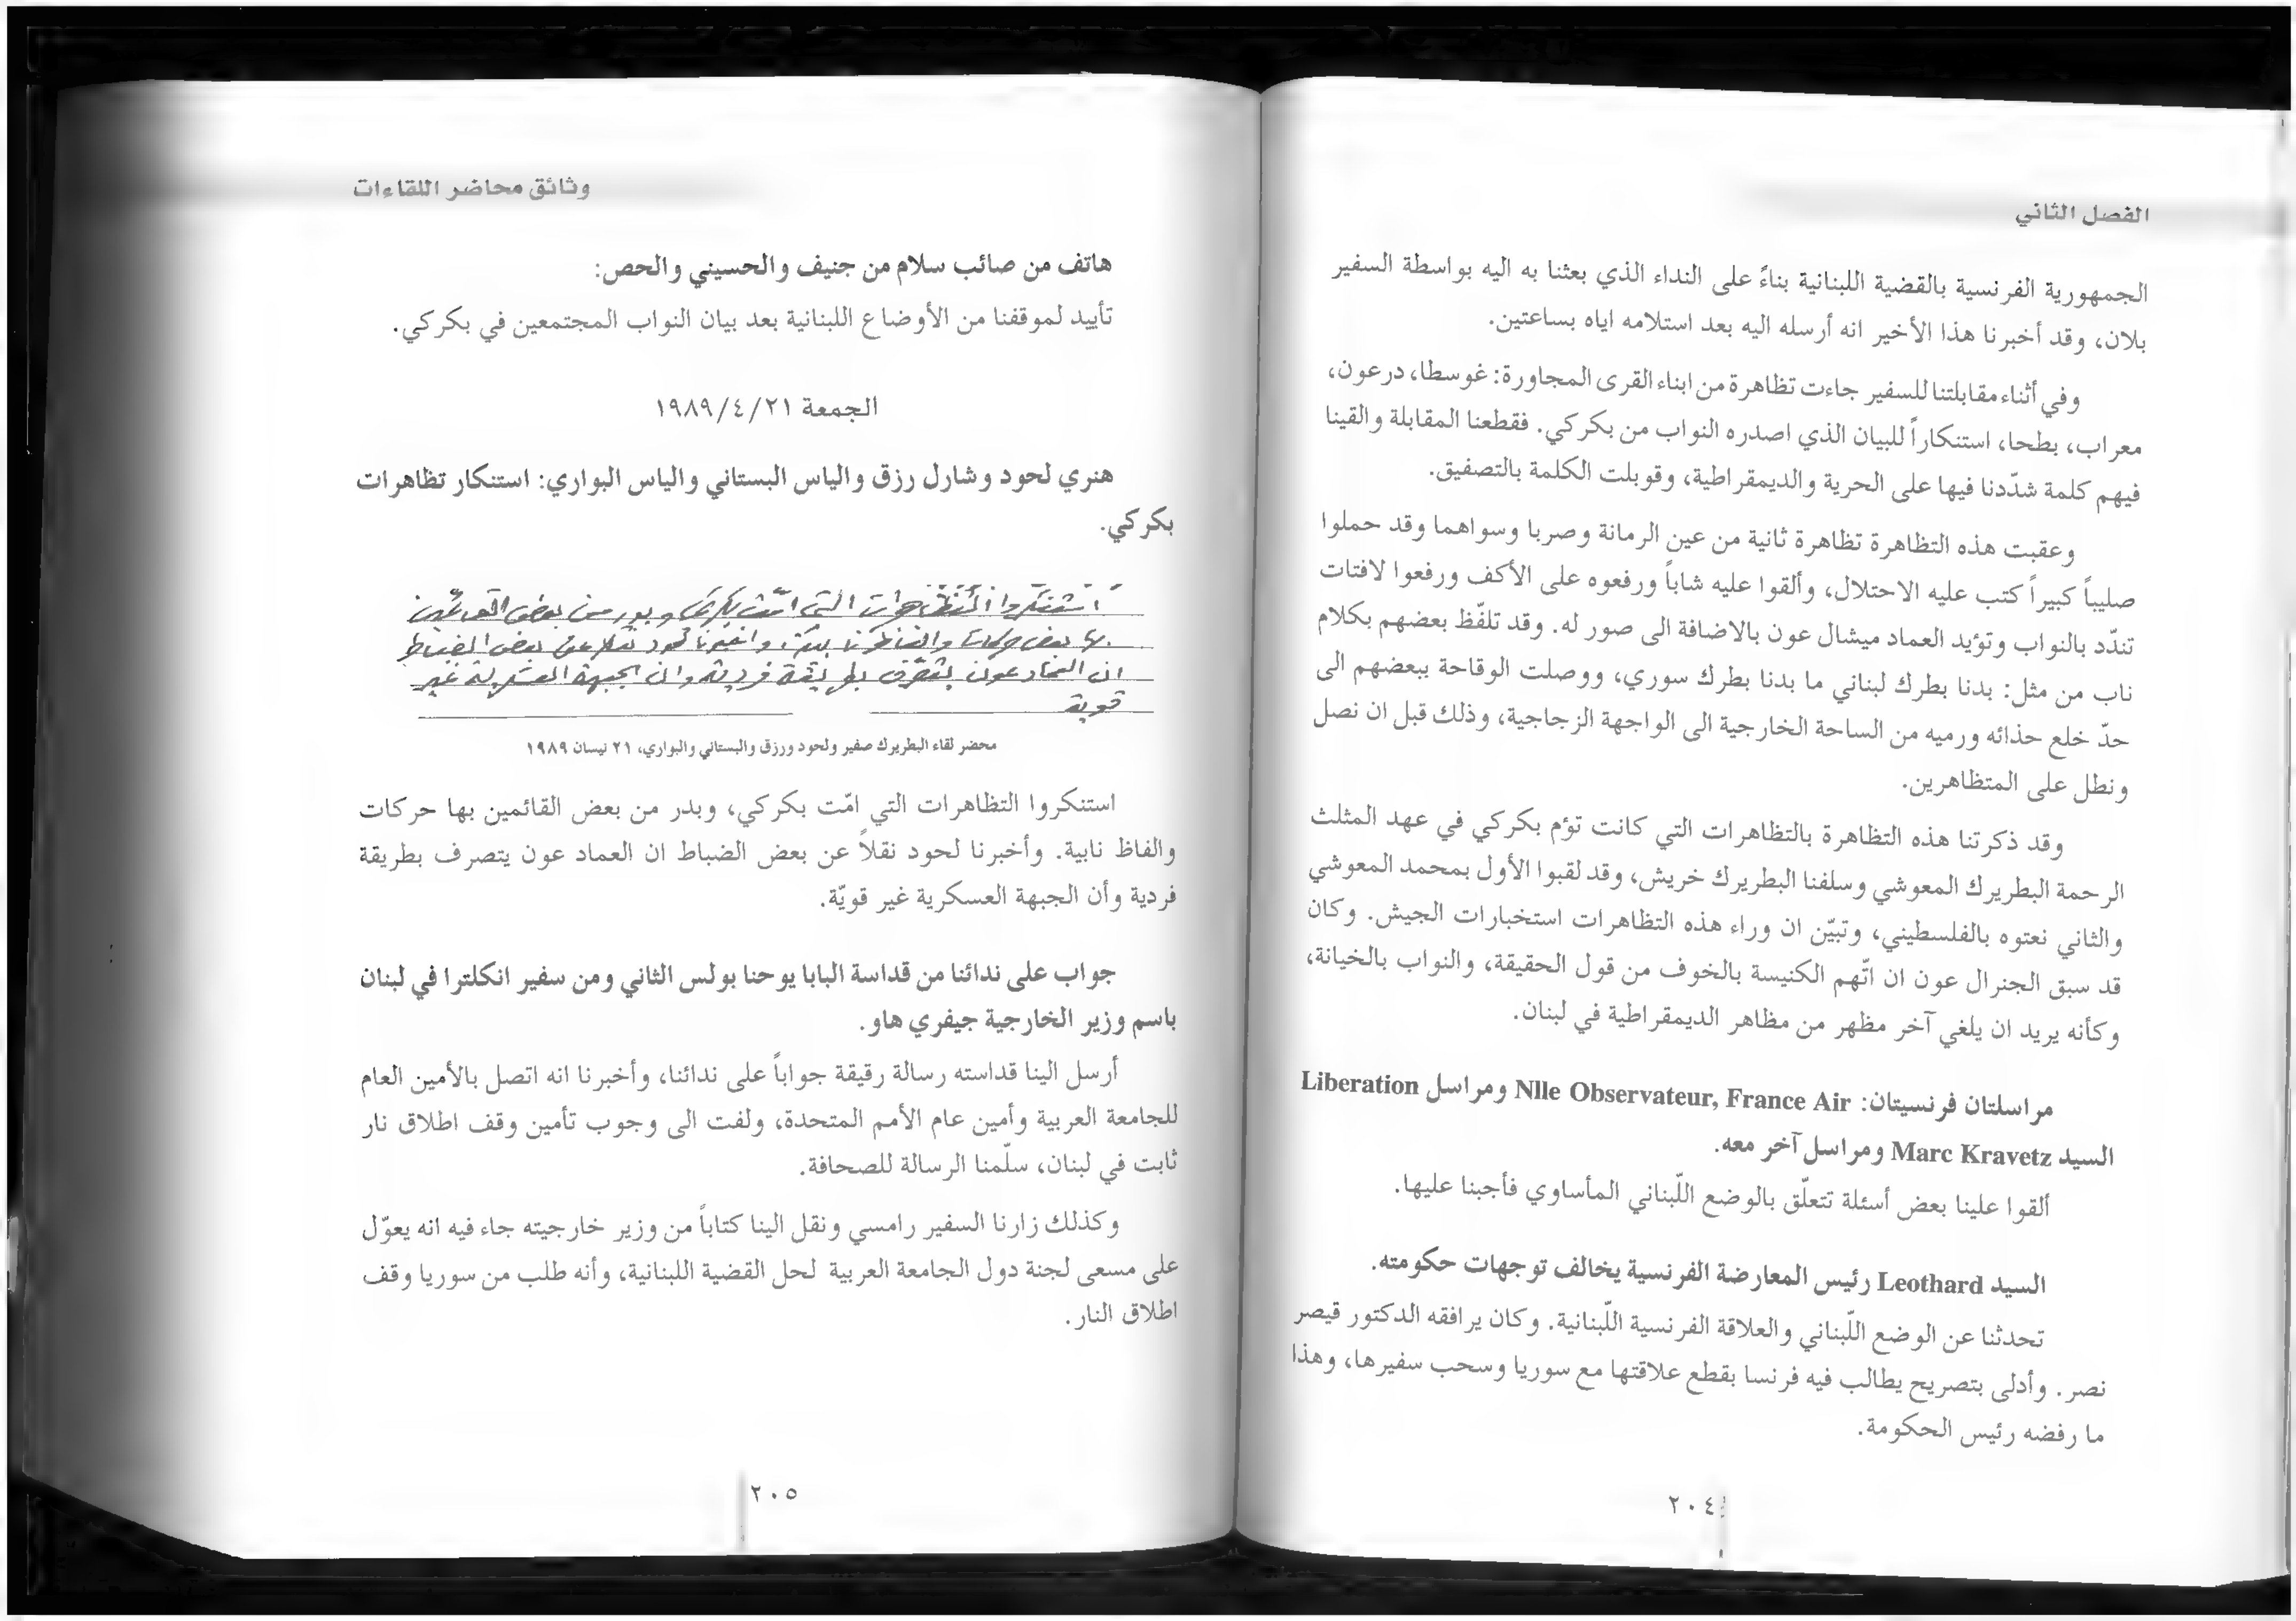 الفصل الثاني
الجمهورية الفرنسية بالقضية اللبنانية بناءً على النداء الذي بعثنا به اليه بواسطة السفير
بلان، وقد أخبرنا هذا الأخير انه أرسله اليه بعد استلامه اياه بساعتين.
وفي أثناء مقابلتنا للسفير جاءت تظاهرة من ابناء القرى المجاورة: غوسطا، درعون،
معراب، بطحا، استنكاراً للبيان الذي اصدره النواب من بكركي. فقطعنا المقابلة والقينا
فيهم كلمة شدّدنا فيها على الحرية والديمقراطية، وقوبلت الكلمة بالتصفيق.
وعقبت هذه التظاهرة تظاهرة ثانية من عين الرمانة وصربا وسواهما وقد حملوا
صليباً كبيراً كتب عليه الاحتلال، وألقوا عليه شاباً ورفعوه على الأكف ورفعوا لافتات
تندّد بالنواب وتؤيد العماد ميشال عون بالاضافة الى صور له. وقد تلفّظ بعضهم بكلام
ناب من مثل: بدنا بطرك لبناني ما بدنا بطرك سوري، ووصلت الوقاحة ببعضهم الى
حدّ خلع حذائه ورميه من الساحة الخارجية الى الواجهة الزجاجية، وذلك قبل ان نصل
ونطل على المتظاهرين.
وقد ذكرتنا هذه التظاهرة بالتظاهرات التي كانت تؤم بكركي في عهد المثلث
الرحمة البطريرك المعوشي وسلفنا البطريرك خريش، وقد لقبوا الأول بمحمد المعوشي
والثاني نعتوه بالفلسطيني، وتبيّن ان وراء هذه التظاهرات استخبارات الجيش. وكان
قد سبق الجنرال عون ان اتّهم الكنيسة بالخوف من قول الحقيقة، والنواب بالخيانة،
وكأنه يريد ان يلغي آخر مظهر من مظاهر الديمقراطية في لبنان.
مراسلتان فرنسيتان: Nlle Observateur, France Air ومراسل Liberation
السيد Marc Kravetz ومراسل آخر معه.
ألقوا علينا بعض أسئلة تتعلّق بالوضع اللّبناني المأساوي فأجبنا عليها.
السيد Leothard رئيس المعارضة الفرنسية يخالف توجهات حكومته.
تحدثنا عن الوضع اللّبناني والعلاقة الفرنسية اللّبنانية. وكان يرافقه الدكتور قيصر
نصر. وأدلى بتصريح يطالب فيه فرنسا بقطع علاقتها مع سوريا وسحب سفيرها، وهذا
ما رفضه رئيس الحكومة.
٢٠٤
وثائق محاضر اللقاءات
هاتف من صائب سلام من جنيف والحسيني والحص:
تأييد لموقفنا من الأوضاع اللبنانية بعد بيان النواب المجتمعين في بكركي.
الجمعة ٢١/٤/١٩٨٩
هنري لحود وشارل رزق والياس البستاني والياس البواري: استنكار تظاهرات
بكركي.
استنكروا التظاهرات التي امّت بكركي وبدر من بعض القائمين
بها بعض حركات والفاظ نابية، واخبرنا لحود نقلا عن بعض الضباط
ان العماد عون يتصرّف بطريقة فردية وان الجبهة العسكرية غير
قوية
محضر لقاء البطريرك صفير ولحود ورزق والبستاني والبواري، ٢١ نيسان ١٩٨٩
استنكروا التظاهرات التي امّت بكركي، وبدر من بعض القائمين بها حركات
والفاظ نابية. وأخبرنا لحود نقلاً عن بعض الضباط ان العماد عون يتصرف بطريقة
فردية وأن الجبهة العسكرية غير قويّة.
جواب على ندائنا من قداسة البابا يوحنا بولس الثاني ومن سفير انكلترا في لبنان
باسم وزير الخارجية جيفري هاو.
أرسل الينا قداسته رسالة رقيقة جواباً على ندائنا، وأخبرنا انه اتصل بالأمين العام
للجامعة العربية وأمين عام الأمم المتحدة، ولفت الى وجوب تأمين وقف اطلاق نار
ثابت في لبنان، سلّمنا الرسالة للصحافة.
وكذلك زارنا السفير رامسي ونقل الينا كتاباً من وزير خارجيته جاء فيه انه يعوّل
على مسعى لجنة دول الجامعة العربية لحل القضية اللبنانية، وأنه طلب من سوريا وقف
اطلاق النار.
٢٠٥